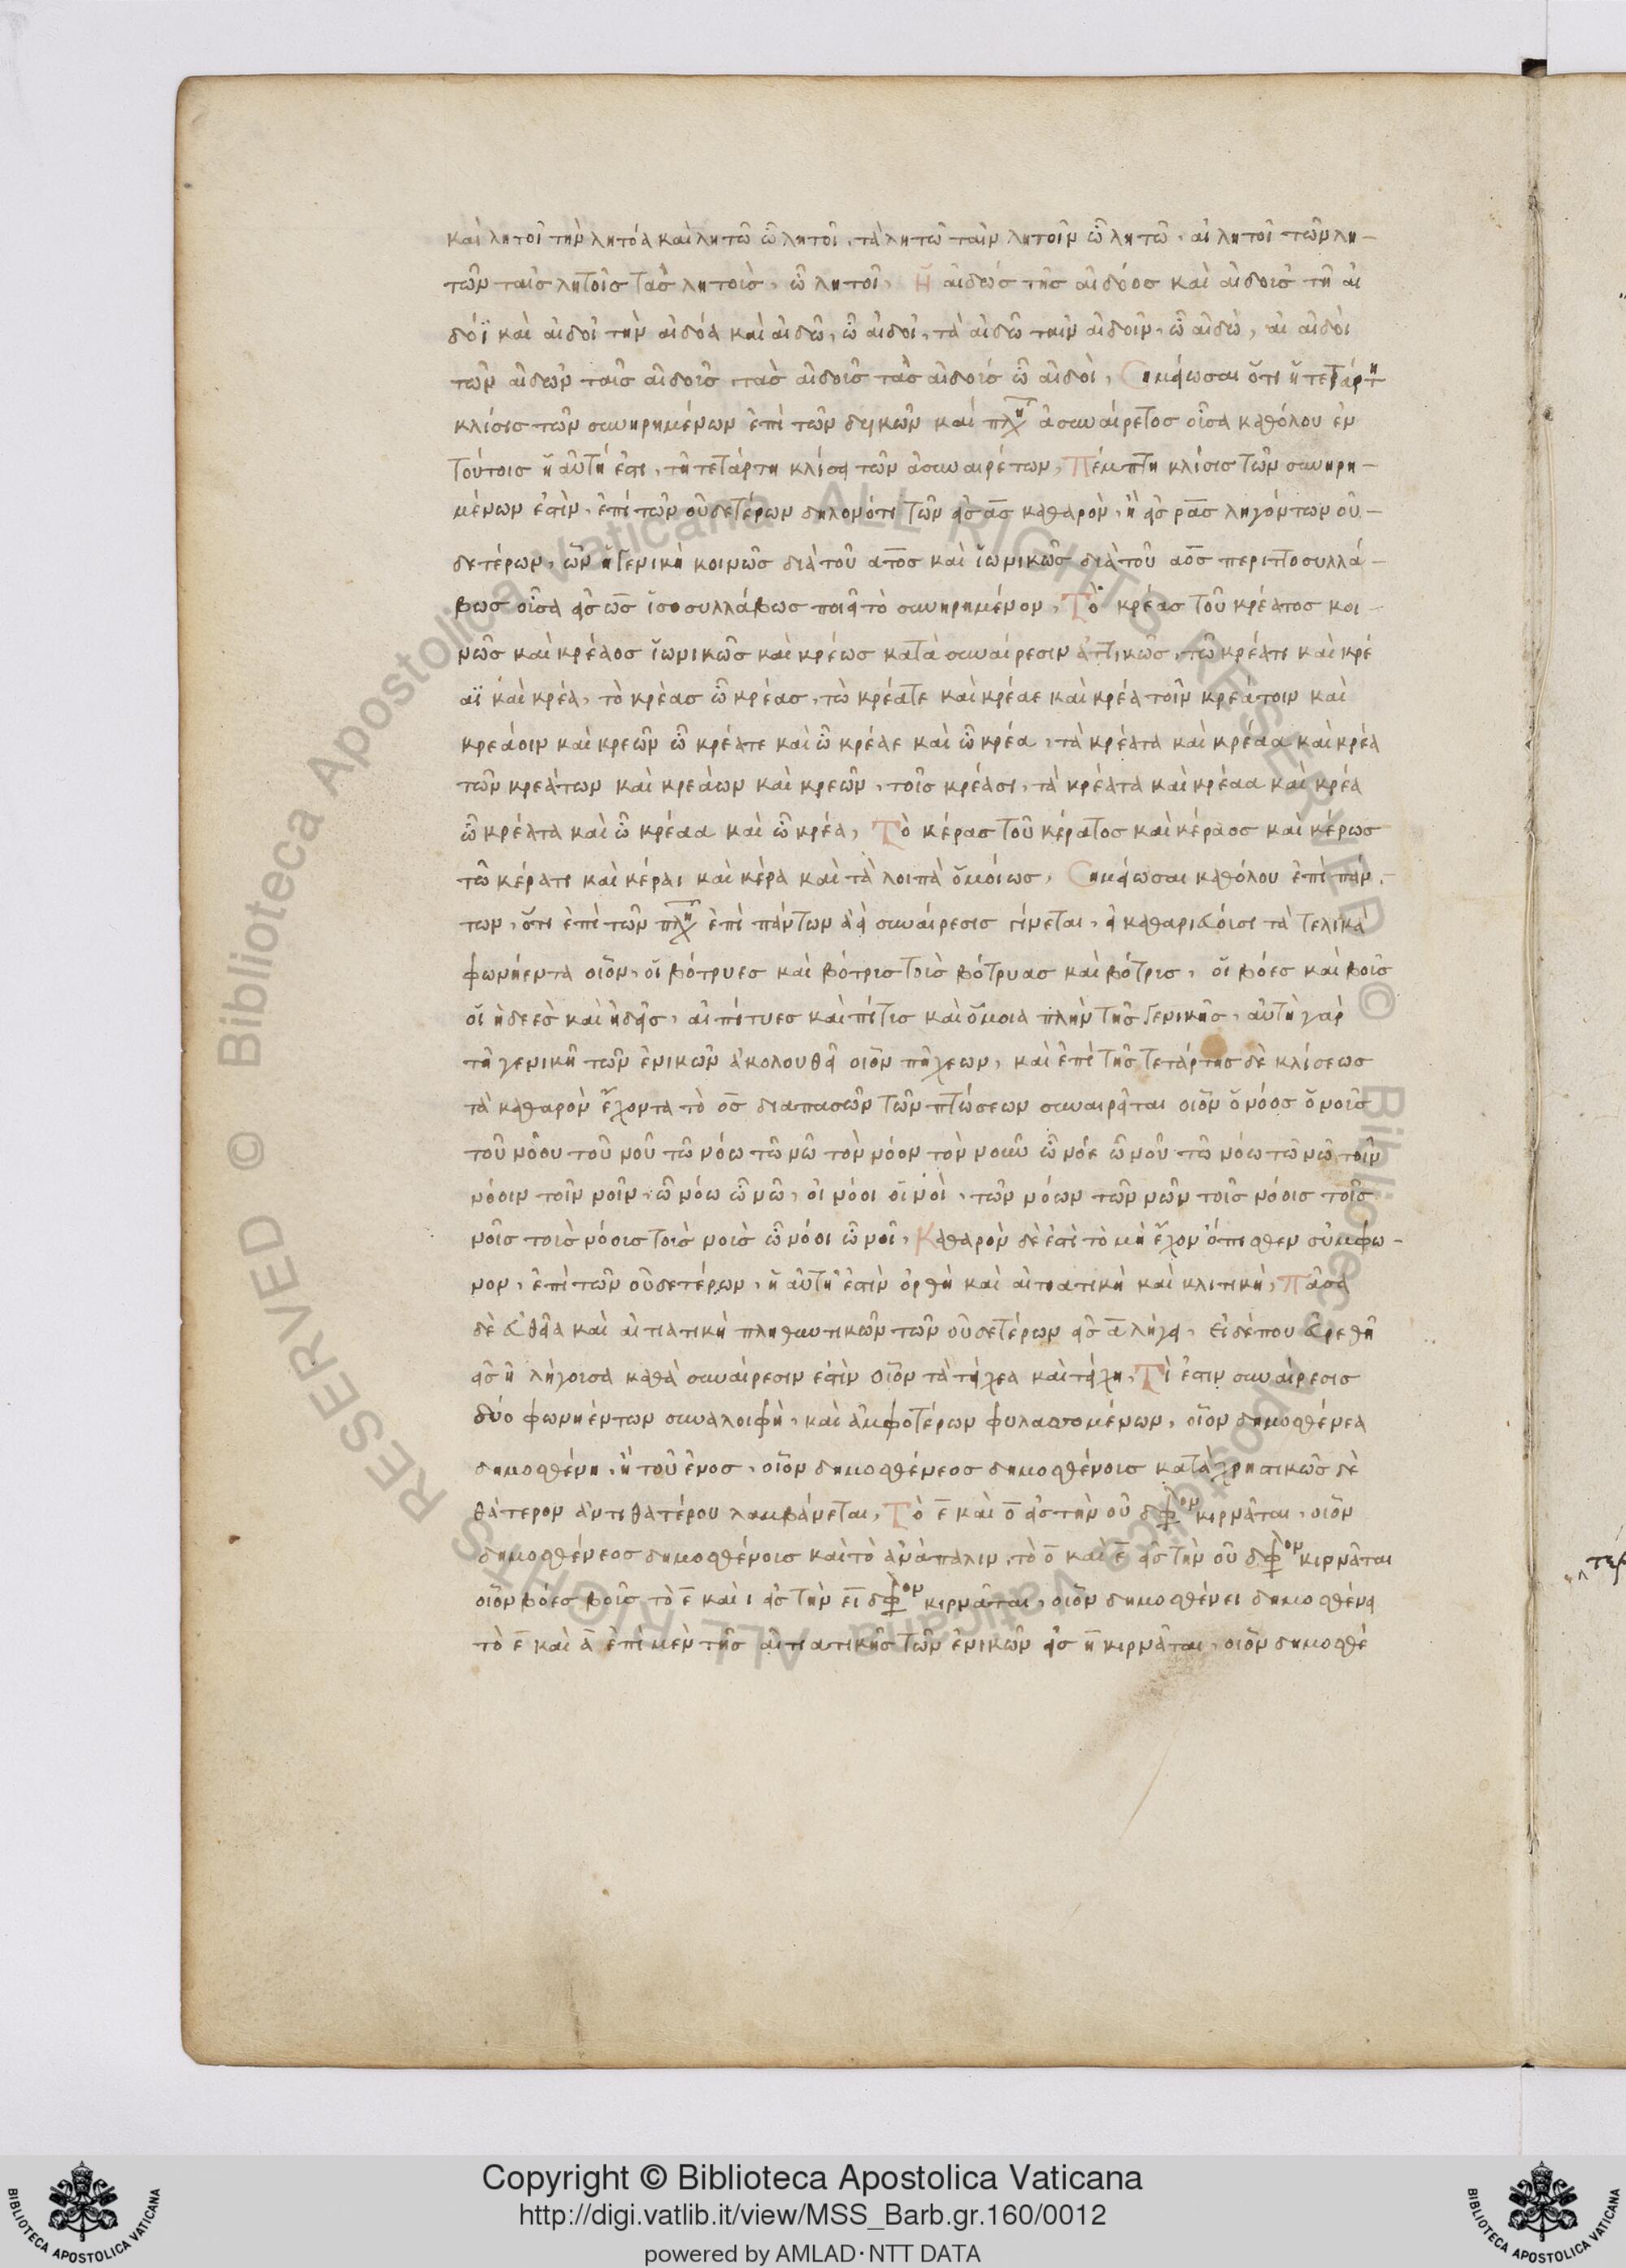 καὶ λητοῖ τὴν λητόα καὶ λητῶ ὦ λητοῖ, τὰ λητῶ ταῖν λητοῖν ὦ λητῶ, αἱ λητοὶ τῶν λη-
τῶν ταῖς λητοῖς τὰς λητοὺς, ὦ λητοῖ, Ἡ αἰδὼς τῆς αἰδόος καὶ αἰδοῦς τῇ αἰ
δόϊ καὶ αἰδοῖ τὴν αἰδόα καὶ αἰδῶ, ὦ αἰδοῖ, τὰ αἰδῶ ταῖν αἰδοῖν, ὦ αἰδὼ, αἱ αἰδοὶ
τῶν αἰδῶν ταῖς αἰδοῖς τὰς αἰδοὺς ὦ αἰδοὶ, Σημείωσαι ὅτι ἡ τετάρτη
κλίσις τῶν συνηρημένων ἐπὶ τῶν δυικῶν καὶ πλη ἀσυναίρετος οὖσα καθόλου ἐν
τούτοις ἡ αὐτή ἐστι, τῇ τετάρτῃ κλίσει τῶν ἀσυναιρέτων, Πέμπτη κλίσις τῶν συνηρη-
μένων ἐστὶν, ἐπὶ τῶν οὐδετέρων δηλονότι τῶν εἰς ας καθαρὸν, ἢ εἰς ρας ληγόντων οὐ-
δετέρων, ὧν ἡ γενικὴ κοινῶς διὰ τοῦ ατος καὶ ἰωνικῶς διὰ τοῦ αος περιττοσυλλά-
βως οὖσα εἰς ως ἰσοσυλλάβως ποιεῖ τὸ συνηρημένον, Τὸ κρέας τοῦ κρέατος κοι-
νῶς καὶ κρέαος ἰωνικῶς καὶ κρέως κατὰ συναίρεσιν ἀττικῶς, τῷ κρέατι καὶ κρέ
αϊ καὶ κρέα, τὸ κρέας ὦ κρέας, τὼ κρέατε καὶ κρέαε καὶ κρέα τοῖν κρεάτοιν καὶ
κρεάοιν καὶ κρεῶν ὦ κρέατε καὶ ὦ κρέαε καὶ ὦ κρέα, τὰ κρέατα καὶ κρέαα καὶ κρέα
τῶν κρεάτων καὶ κρεάων καὶ κρεῶν, τοῖς κρέασι, τὰ κρέατα καὶ κρέαα καὶ κρέα
ὦ κρέατα καὶ ὦ κρέαα καὶ ὦ κρέα, Τὸ κέρας τοῦ κέρατος καὶ κέραος καὶ κέρως
τῷ κέρατι καὶ κέραι καὶ κέρα καὶ τὰ λοιπὰ ὁμοίως, Σημείωσαι καθόλου ἐπὶ πάν-
των, ὅτι ἐπὶ τῶν πλη ἐπὶ πάντων ἀεὶ συναίρεσις γίνεται, εἰ καθαρεύουσι τὰ τελικά
φωνήεντα οἷον, οἱ βότρυες καὶ βότρυς τοὺς βότρυας καὶ βότρυς, οἱ βόες καὶ βοῦς
οἱ ἡδέες καὶ ἡδεῖς, αἱ πίτυες καὶ πίτυς καὶ ὅμοια πλὴν τῆς γενικῆς, αὐτὴ γὰρ
τῇ γενικῇ τῶν ἑνικῶν ἀκολουθεῖ οἷον πήχεων, καὶ ἐπὶ τῆς τετάρτης δὲ κλίσεως
τὰ καθαρὸν ἔχοντα τὸ ος διαπασῶν τῶν πτώσεων συναιρεῖται οἷον ὁ νόος ὁ νοῦς
τοῦ νόου τοῦ νοῦ τῷ νόῳ τῷ νῷ τὸν νόον τὸν νοῦν ὦ νόε ὦ νοῦ τὼ νόω τὼ νὼ τοῖν
νόοιν τοῖν νοῖν, ὦ νόω ὦ νῶ, οἱ νόοι οἱ νοὶ, τῶν νόων τῶν νῶν τοῖς νόοις τοῖς
νοῖς τοὺς νόους τοὺς νοὺς ὦ νόοι ὦ νοῖ, Καθαρὸν δέ ἐστὶ τὸ μὴ ἔχον ὄπισθεν σύμφω-
νον, ἐπὶ τῶν οὐδετέρων, ἡ αὐτή ἐστὶν ὀρθὴ καὶ αἰτιατικὴ καὶ κλιτικὴ, Πᾶσα
δὲ εὐθεῖα καὶ αἰτιατικὴ πληθυντικῶν τῶν οὐδετέρων εἰς α λήγει, εἰ δέ που εὑρεθῇ
εἰς η λήγουσα καθὰ συναίρεσιν ἐστὶν οἷον τὰ τείχεα καὶ τείχη, Τί ἐστιν συναίρεσις
δύο φωνηέντων συναλοιφὴ, καὶ ἀμφοτέρων φυλαττομένων, οἷον δημοσθένεα
δημοσθένη, ἢ τοῦ ἑνὸς, οἷον δημοσθένεος δημοσθένους καταχρηστικῶς δὲ
θάτερον ἀντι θατέρου λαμβάνεται, Τὸ ε καὶ ο εἰς τὴν ου δφον κιρνᾶται, οἷον
δημοσθένεος δημοσθένους καὶ τὸ ἀνάπαλιν, τὸ ο καὶ ε εἰς τὴν ου δφον κιρνᾶται
οἷον βόες βοῦς τὸ ε καὶ ι εἰς τὴν ει δφον κιρνᾶται, οἷον δημοσθένεϊ δημοσθένει
τὸ ε καὶ α ἐπὶ μὲν τῆς αἰτιατικῆς τῶν ἑνικῶν εἰς η κιρνᾶται, οἷον δημοσθέ
Copyright © Biblioteca Apostolica Vaticana
http://digi.vatlib.it/view/MSS_Barb.gr.160/0012
powered by AMLAD·NTT DATA